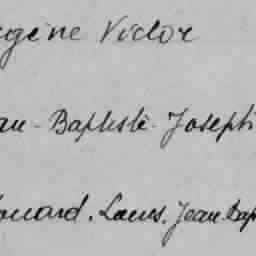 ugène Victor
an-Baptiste-Joseph
ouard. Louis. Jean Bap